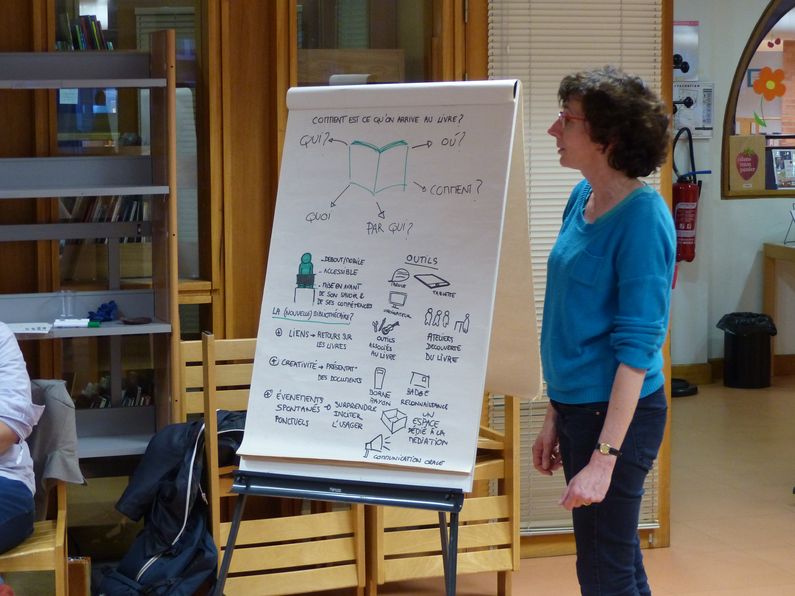 COMMENT EST CE QU'ON ARRIVE AU LIVRE?
QUI?
OÙ?
COMMENT?
QUOI
PAR QUI?
-DEBOUT/MOBILE
-ACCESSIBLE
-MISE EN AVANT
DE SON SAVOIR &
DE SES COMPÉTENCES
LA (NOUVELLE) BIBLIOTHÉCAIRE?
LIENS → RETOURS SUR
LES LIVRES
CREATIVITÉ → PRÉSENTAT°
DES DOCUMENTS
ÉVENEMENTS
SPONTANÉS
PONCTUELS
→ SURPRENDRE
INCITER
L'USAGER
OUTILS
TABLETTE
OUTILS
ASSOCIÉS
AU LIVRE
ATELIERS
DECOUVERTE
DU LIVRE
BORNE
RAYON
BADGE
RECONNAISSANCE
UN
ESPACE
DÉDIÉ À LA
MÉDIATION
COMMUNICATION ORALE